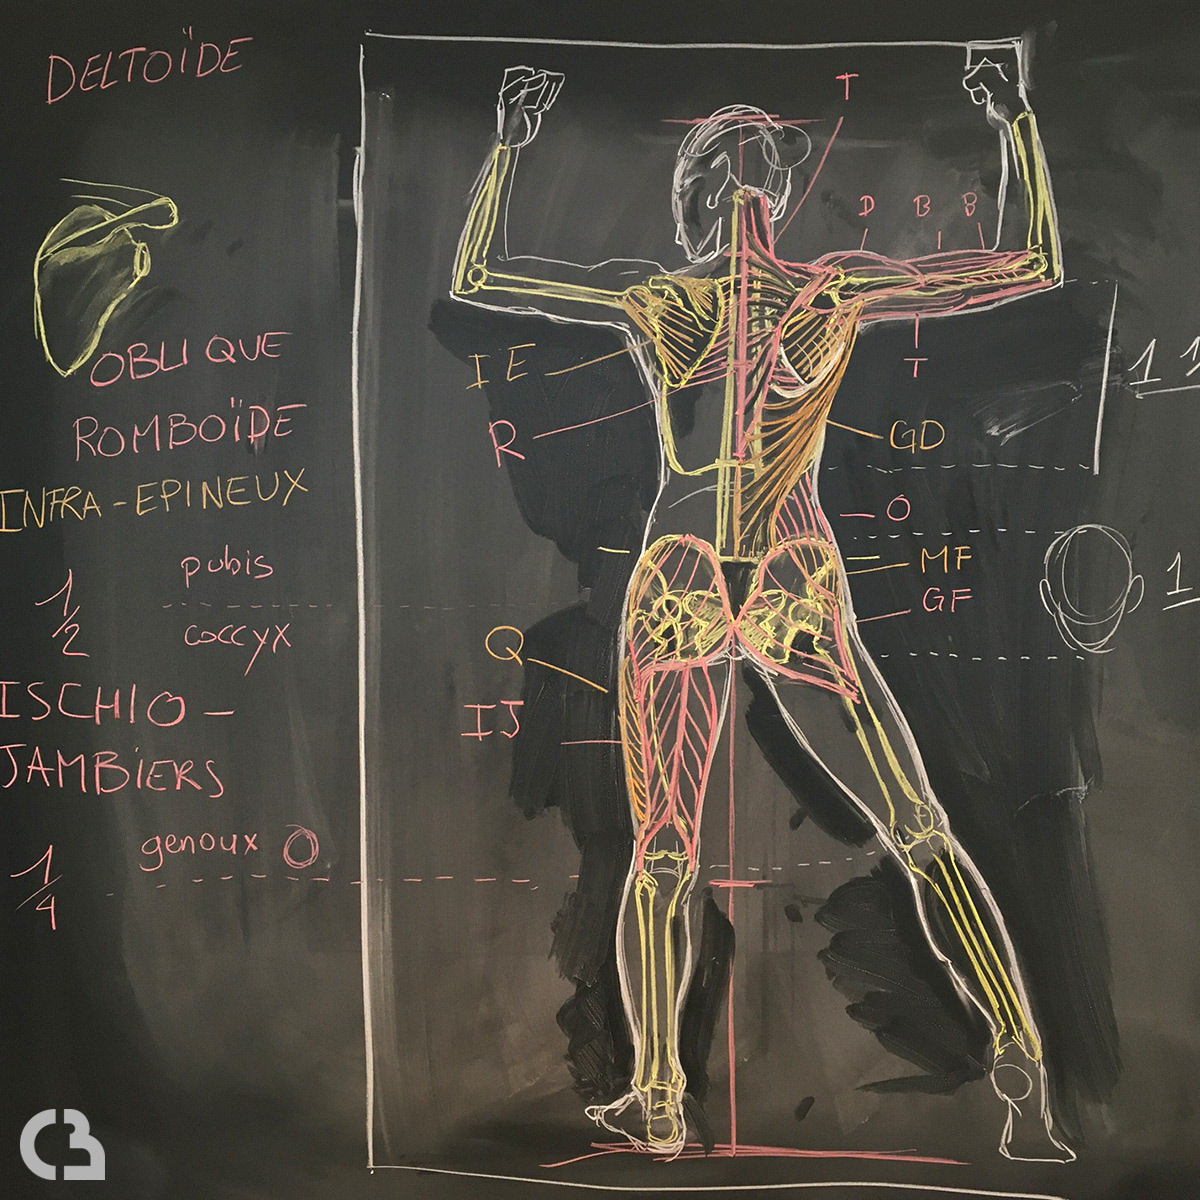 DELTOÏDE
OBLIQUE
ROMBOÏDE
INFRA-EPINEUX
pubis
1/2
coccyx
ISCHIO-
JAMBiERS
genoux
1/4
T
D B B
T
IE
R
GD
O
MF
GF
Q
IJ
1 1
1
CB